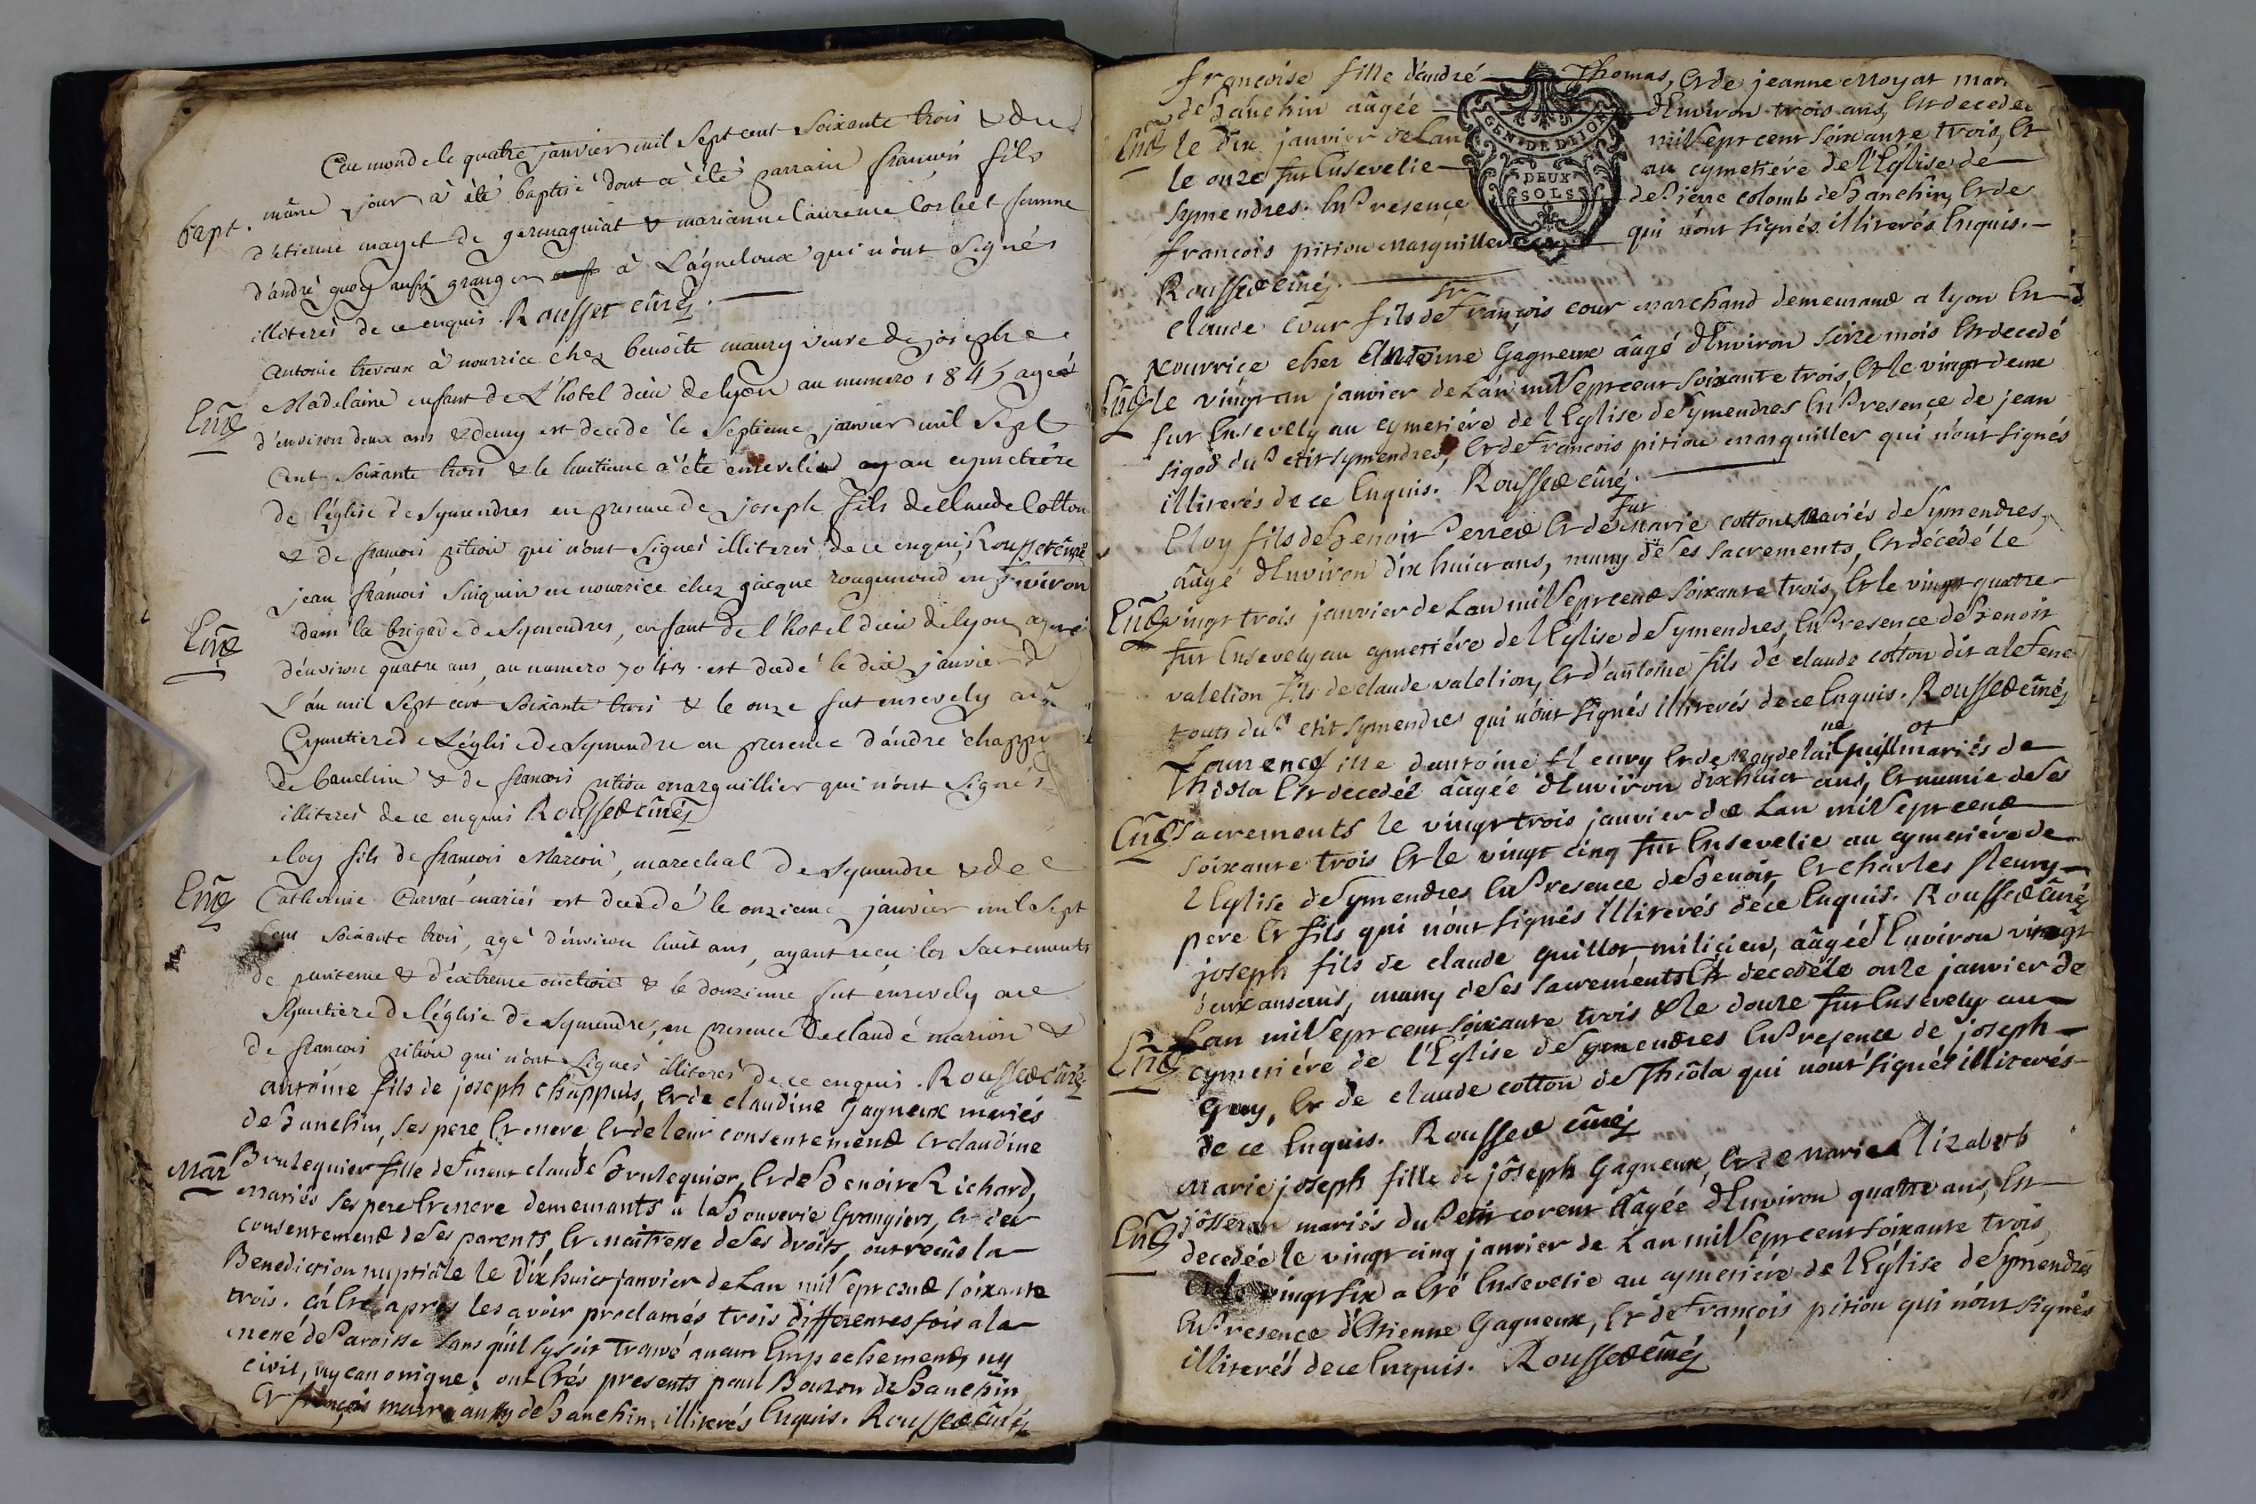 Cau monde le quatre janvier mil sept cent soixante trois & du
bapt. même jour à été baptisé dont a été parrain françois fils
d'etienne mayet de germagniat & marianne Laurence Corbet femme
d'andré guoy aussi granger à Lagneloux qui n'ont signés
illiterés de ce enquis. Rousset curé.
Antoine trevoux à nourrice chez benoite maury veuve de josephe
Madelaine enfant de L'hotel dieu de lyon au numero 1845 agée
Ent d'environ deux ans & demy est decedé le septieme janvier mil sept
Cent soixante trois & le huitieme à été enseveli au cymetiére
de l'église de Symendres en presence de joseph fils de claude Cotton
& de françois pition qui n'ont signés illiterés de ce enquis Rousset curé
jean françois Suiquin en nourrice chez jacque rougemond en Suiron
Ent dans la brigade de Symendres, enfant de l'hotel dieu de lyon agé
d'environ quatre ans, au numero est decedé le dix janvier d
L'an mil sept cent soixante trois & le onze fut ensevely au
Cymetiere de L'églis de Symendre en presence d'andré chappu
de banchin & de francois pition marguillier qui n'ont signés
illiterés de ce enquis Rousset curé
eloy fils de francois Marion, marechal de Symendre & de
Ent Catherine Curvat mariés est decedé le onzieme janvier mil sept
Cent soixante trois, agé d'environ huit ans, ayant reçu les Sacrements
de penitence & d'extreme onction & le douzieme fut ensevely au
Cymetiere de l'église de Symendre, en presence de claude marion &
de françois pition qui n'ont signés illiterés de ce enquis. Rousset curé
antoine fils de joseph chappuis, et de claudine Gagneux mariés
de banchin, ses pere et mere, et de leur consentement et claudine
Mar Brulequier fille de furent claude brulequier, et de benoite Richard,
mariés ses pere et mere demeurants à la bouverie Grangiers, et du
consentement de ses parents, et maitresse de ses droits, ont reçus la
Benediction nuptiale le dix huict janvier de Lan mil sept cent soixante
trois. apres les avoir proclamés trois differentes fois a la
mené de Paroisse sans qu'il sy soit trouvé aucun Empechement ny
civil, ny canonique, ont etés presents paul Bouzon de Banchin
et françois mure aussy de banchin illiterés Enquis. Rousset curé
françoise fille d'andré Thomas, et de jeanne Moyat mar
de banchin aâgée d'Environ trois ans, est decedée
Ent le dix janvier de Lan mil sept cent soixante trois, et
le onze fut Ensevelie au cymetiére de l'Eglise de
Symendres. En Presence de Pierre colomb de banchin, et de
françois pition marguiller qui n'ont signés illiterés Enquis.
GEN. DE DIJON
DEUX
SOLS
Rousset curé.
claude cour fils de sr françois cour marchand demeurant a lyon En
nourrice cher Antoine Gagneux aâgé d'Environ seize mois est decedé
Ent le vingt un janvier de Lan mil sept cent soixante trois, et le vingt deux
fut Ensevely au cymetiére de l'Eglise de Symendres En Presence de jean
sigod du Petit symendres, et de François pition marguiller qui n'ont signés
illiterés de ce Enquis. Rousset curé.
Eloy fils de benoit Perret et de fut Marie cotton Mariés de Symendres,
aâgé d'Environ dix huict ans, muny de ses sacrements, est décédé le
Ent vingt trois janvier de Lan mil sept cent soixante trois, et le vingt quatre
fut Ensevely au cymetiére de l'Eglise de Symendres, En Presence de benoit
valetion fils de claude valetion, et d'antoine fils de claude cotton dit
touts du Petit symendres qui n'ont signés illiterés de ce Enquis. Rousset curé
Laurence fille d'antoine fleury et de mariés de
Thiola est decedée aâgée d'Environ dix huict ans, et munie de ses
Ent Sacrements le vingt trois janvier de Lan mil sept cent
soixante trois et le vingt cinq fut Ensevelie au cymetiére de
l'Eglise de Symendres En Presence de benoit et charles fleury
pere et fils qui n'ont signés illiterés de ce Enquis. Rousset curé
joseph fils de claude guillot, milicien, aâgéé Environ vingt
deux ans, muny de ses sacrements est decedé le onze janvier de
Ent Lan mil sept cent soixante trois & le douze fut Ensevely au
cymetiére de l'Eglise de Symendres En Presence de joseph
Guy, et de claude cotton de Thiola qui n'ont signés illiterés
de ce Enquis. Rousset curé
Marie joseph fille de joseph Gagneux, et de Marie Elizabeth
Ent josseran mariés du Petit corent aâgée d'Environ quatre ans, est
decedée le vingt cinq janvier de Lan mil sept cent soixante trois
et le vingt six a eté Ensevelie au cymetiére de l'Eglise de Symendres
En Presence d'Etienne Gagneux, et de François pition qui n'ont signés
illiterés de ce Enquis. Rousset curé